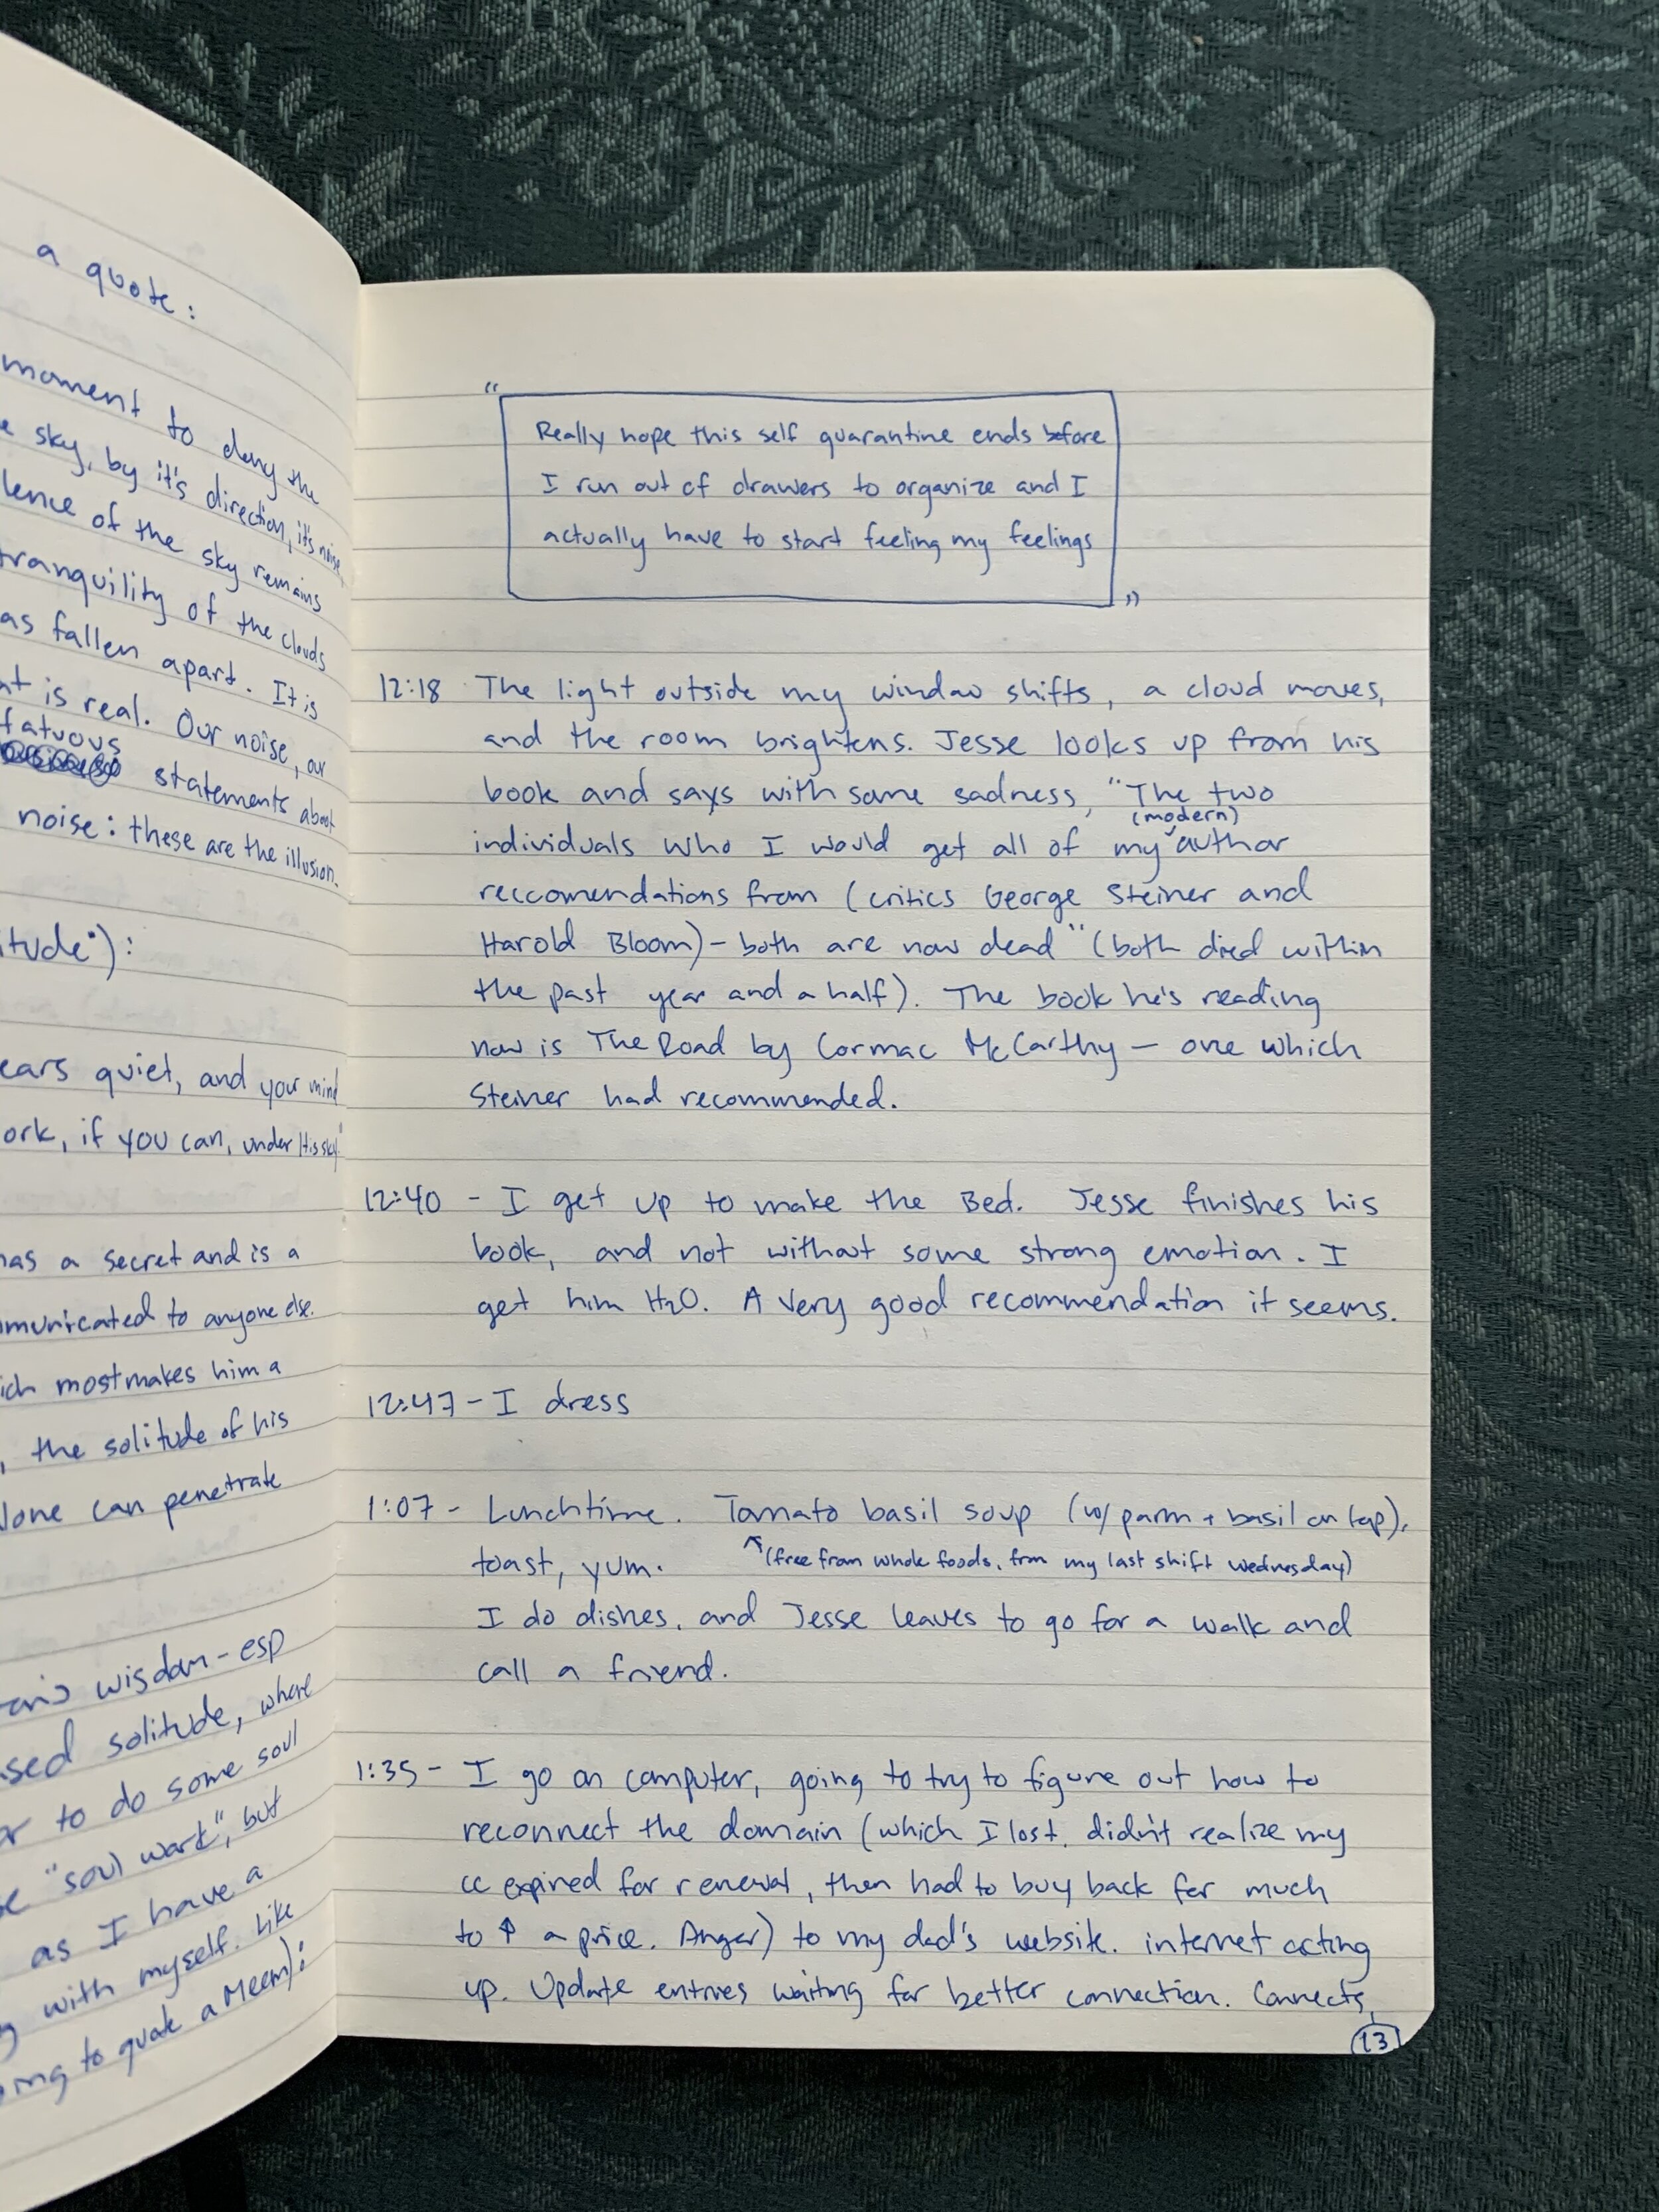 a quote:
moment to deny the
sky, by it's direction, it's noise
lence of the sky remains
tranquility of the clouds
as fallen apart. It is
at is real. Our noise, our
fatuous
statements about
noise: these are the illusion.
itude"):
ears quiet, and your mind
ork, if you can, under His sky."
has a secret and is a
mmunicated to anyone else.
ich most makes him a
, the solitude of his
lone can penetrate
wisdom - esp
sed solitude, where
or to do some soul
"soul work", but
as I have a
with myself. Like
ing to quote a Meem):
"
Really hope this self quarantine ends before
I run out of drawers to organize and I
actually have to start feeling my feelings
"
12:18 The light outside my window shifts, a cloud moves,
and the room brightens. Jesse looks up from his
book and says with some sadness, "The two
(modern)
individuals who I would get all of my author
reccomendations from (critics George Steiner and
Harold Bloom) - both are now dead" (both died within
the past year and a half). The book he's reading
now is The Road by Cormac McCarthy - one which
Steiner had recommended.
12:40 - I get up to make the Bed. Jesse finishes his
book, and not without some strong emotion. I
get him H2O. A very good recommendation it seems.
12:47 - I dress
1:07 - Lunchtime. Tomato basil soup (w/ parm + basil on top),
toast, yum. (free from whole foods, from my last shift wednesday)
I do dishes, and Jesse leaves to go for a walk and
call a friend.
1:35 - I go on computer, going to try to figure out how to
reconnect the domain (which I lost, didn't realize my
cc expired for renewal, then had to buy back for much
to ↑ a price. Anger) to my dad's website. internet acting
up. Update entries waiting for better connection. Connects,
13